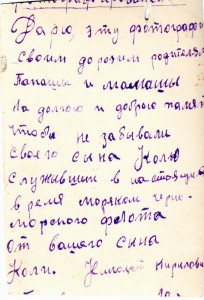 Дарю эту фотографи
своим дорогим родителям
Папаши и мамаши
На долгою и добрую памят
чтоби не забывали
своего сина Колю
служивши в настоящие
время моряком черно-
морского флота
от вашего сина
Коли.